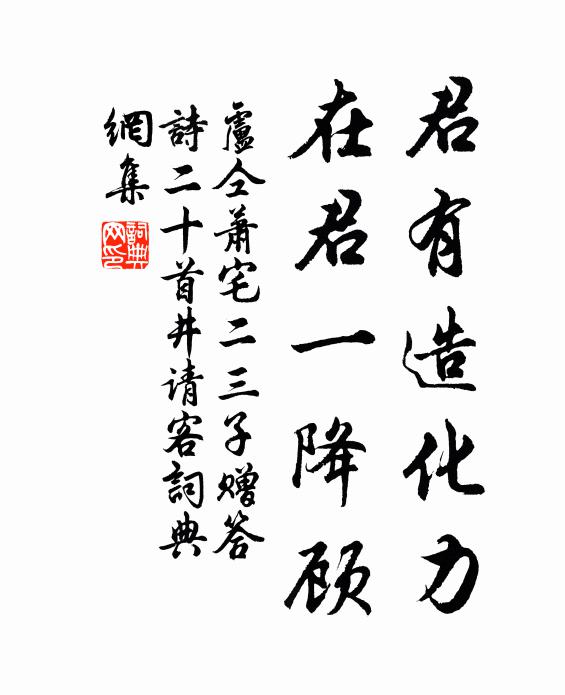 君有造化力
在君一降顾
盧仝萧宅二三子赠答
詩二十首井请客詞典
網集
詞典
网印